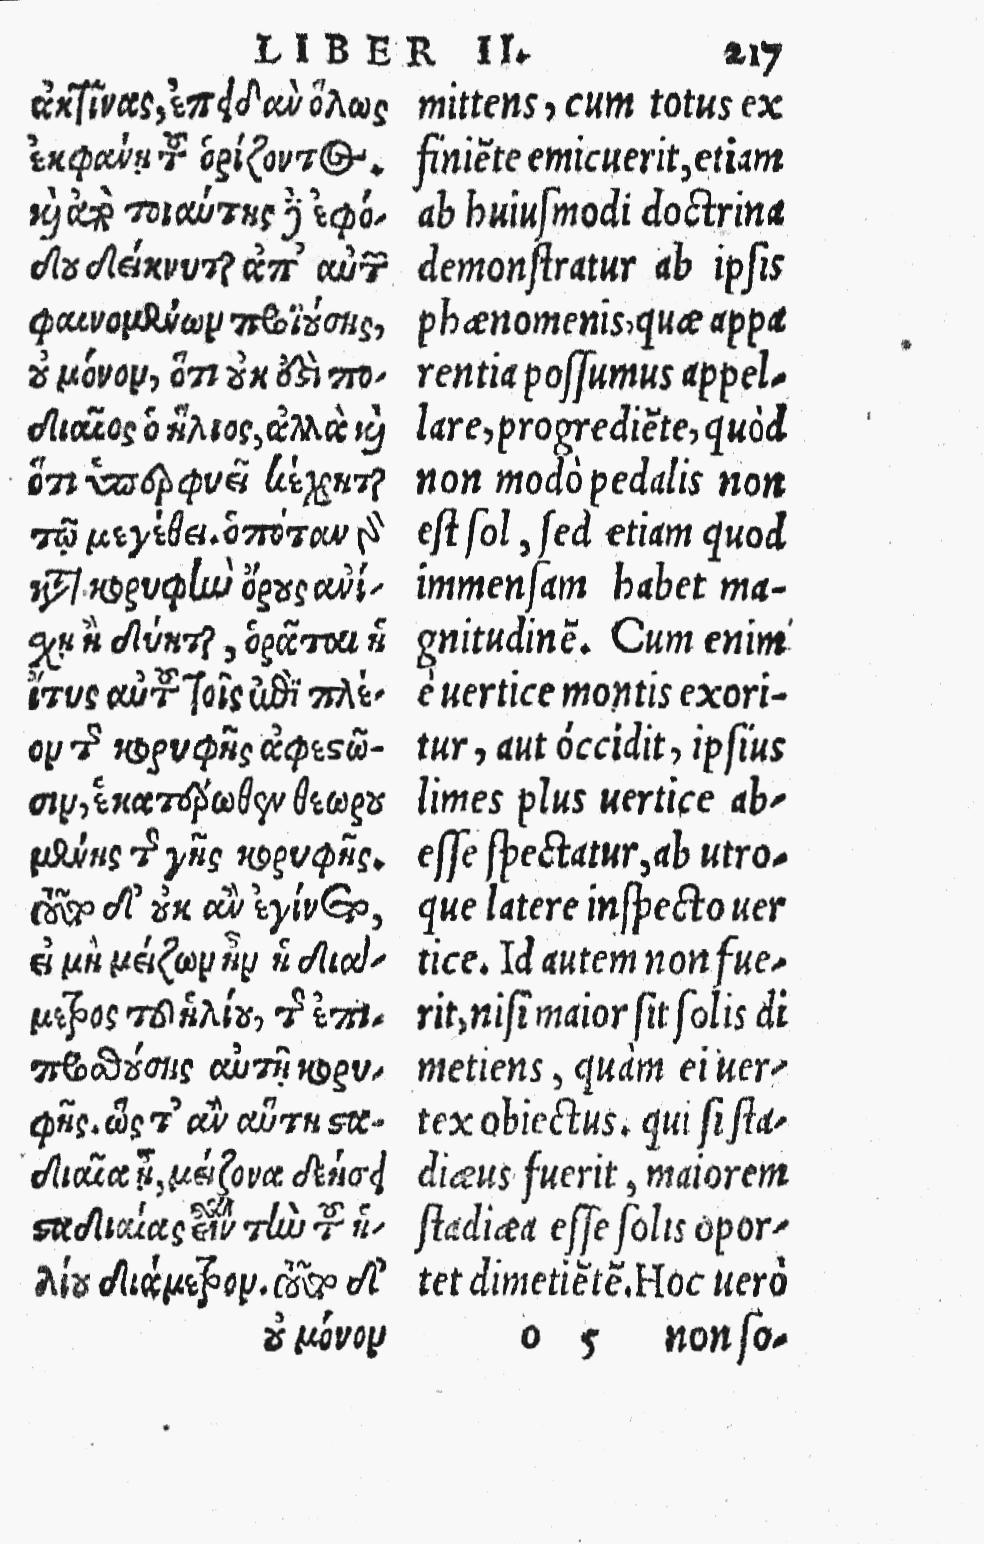 LIBER II. 217
ἀκτῖνας, ἐπειδὰν ὅλως
ἐκφανῇ τοῦ ὁρίζοντος.
καὶ ἀπὸ τοιαύτης δὲ ἐφό-
δου δείκνυται ἀπ' αὐτῶν
φαινομένων προϊούσης,
οὐ μόνον, ὅτι οὐκ ἔστι πο-
διαῖος ὁ ἥλιος, ἀλλὰ καὶ
ὅτι ὑπερφυεῖ κέχρηται
τῷ μεγέθει. ὁπόταν γὰρ
κατὰ κορυφὴν ὄρους ἀνί-
χῃ ἢ δύηται, ὁρᾶται ἡ
ἴτυς αὐτοῦ τοῖς ἐπὶ πλέ-
ον τῆς κορυφῆς ἀφεστῶ-
σιν, ἑκατέρωθεν θεωρου
μένης τῆς γῆς κορυφῆς.
τοῦτο δ' οὐκ ἂν ἐγίνετο,
εἰ μὴ μείζων ἦν ἡ διά-
μετρος τοῦ ἡλίου, τῆς ἐπι-
προσθούσης αὐτῇ κορυ-
φῆς. ὥς τ' ἂν αὕτη στα-
διαῖα ᾖ, μείζονα δεήσει
σταδιαίας εἶναι τὴν τοῦ ἡ-
λίου διάμετρον. τοῦτο δ'
οὐ μόνον
mittens, cum totus ex
finiẽte emicuerit, etiam
ab huiusmodi doctrina
demonstratur ab ipsis
phænomenis, quæ appa
rentia possumus appel-
lare, progrediẽte, quòd
non modò pedalis non
est sol, sed etiam quod
immensam habet ma-
gnitudinẽ. Cum enim
è uertice montis exori-
tur, aut óccidit, ipsius
limes plus uertice ab-
esse spectatur, ab utro-
que latere inspecto uer
tice. Id autem non fue-
rit, nisi maior sit solis di
metiens, quàm ei uer-
tex obiectus. qui si sta-
diæus fuerit, maiorem
stadiæa esse solis opor-
tet dimetiẽtẽ. Hoc uerò
o 5 non so-